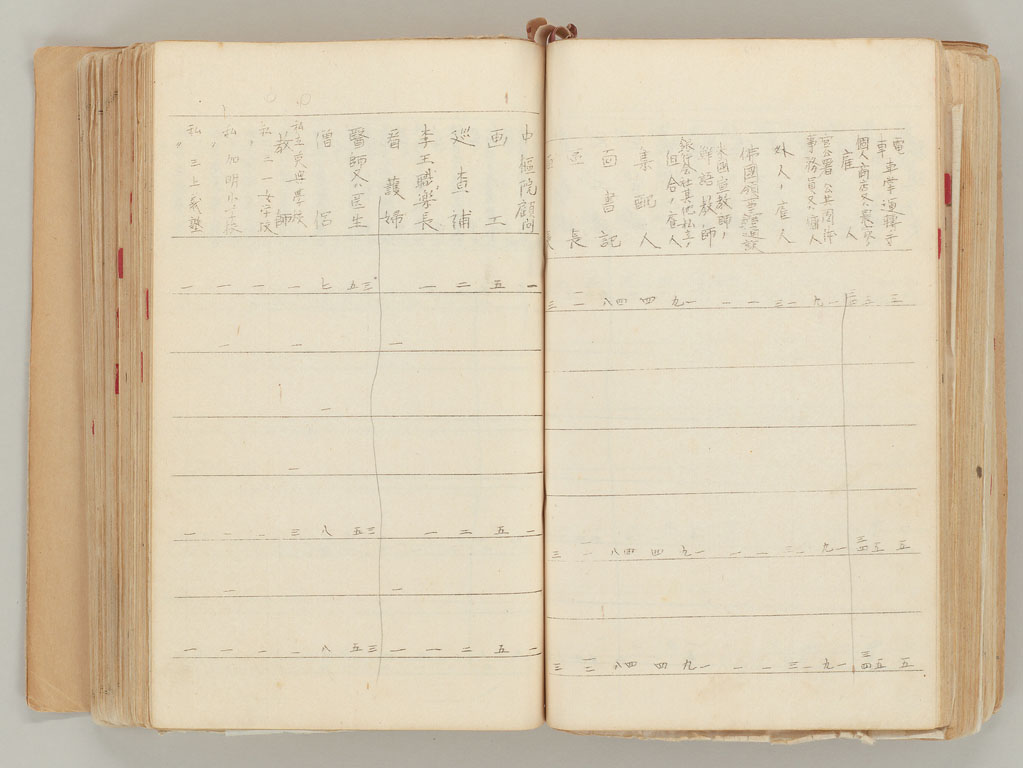 電車車掌運轉手
個人商店又ハ農家
雇人
官公署公共團体
事務員又ハ傭人
外人ノ雇人
佛國領事館通譯
米國宣教師ノ
鮮語教師
銀行會社其他私立ノ
組合ノ雇人
集配人
面書記
区長
三 三 一九 一三 一 一 一九 四 四八 二 三
五 五 三四 一九 三 一 一 一九 四 四八 二 三
五 五 三四 一九 一三 一 一 一九 四 四八 二 三
中樞院顧問
画工
巡査補
李王職樂長
看護婦
醫師又ハ医生
僧侶
私立 學校
教師
私 三一女学校
私〃加明小学校
私〃三上義塾
一 五 二 一 三五 七 一 一 一 一
一 一 一
一
一
一 五 二 一 三五 八 三 一 一 一
一 一
一 五 二 一 一 三五 八 一 一 一 一